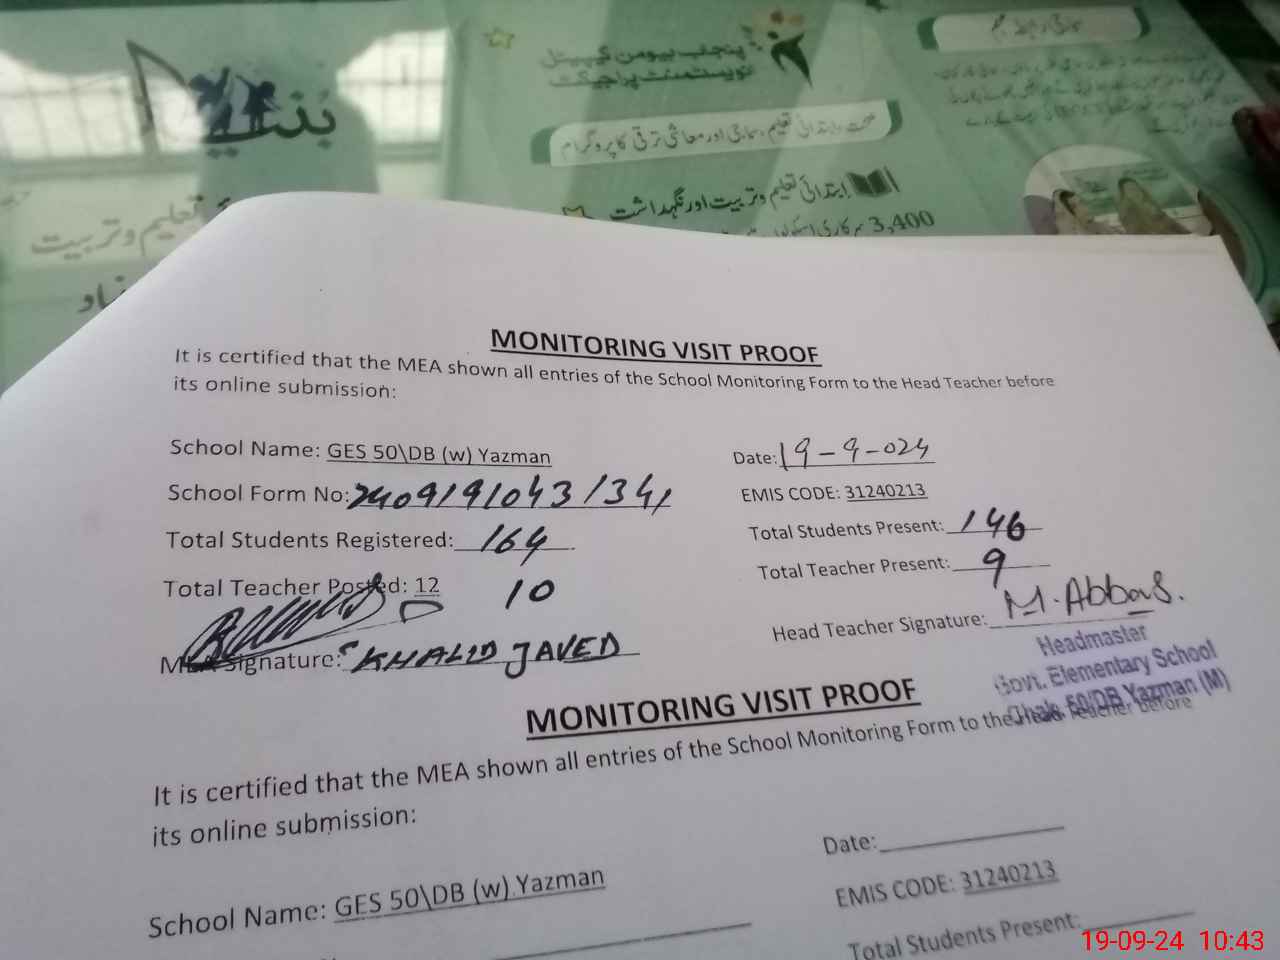 بنیاد
تعلیم و تربیت
پنجاب ہیومن کیپیٹل
انویسٹمنٹ پراجیکٹ
صحت، ابتدائی تعلیم، سماجی اور معاشی ترقی کا پروگرام
ابتدائی تعلیم و تربیت اور نگہداشت
3,400 سرکاری
MONITORING VISIT PROOF
It is certified that the MEA shown all entries of the School Monitoring Form to the Head Teacher before
its online submission:
School Name: GES 50\DB (w) Yazman
Date: 19-9-024
School Form No: 2409191043/341
EMIS CODE: 31240213
Total Students Registered: 164
Total Students Present: 146
Total Teacher Posted: 12 10
Total Teacher Present: 9
MEA Signature: KHALID JAVED
Head Teacher Signature: M. Abbas.
Headmaster
Govt. Elementary School
Chak 50/DB Yazman (M)
MONITORING VISIT PROOF
It is certified that the MEA shown all entries of the School Monitoring Form to the Head Teacher before
its online submission:
Date:
School Name: GES 50\DB (w) Yazman
EMIS CODE: 31240213
Total Students Present:
19-09-24 10:43